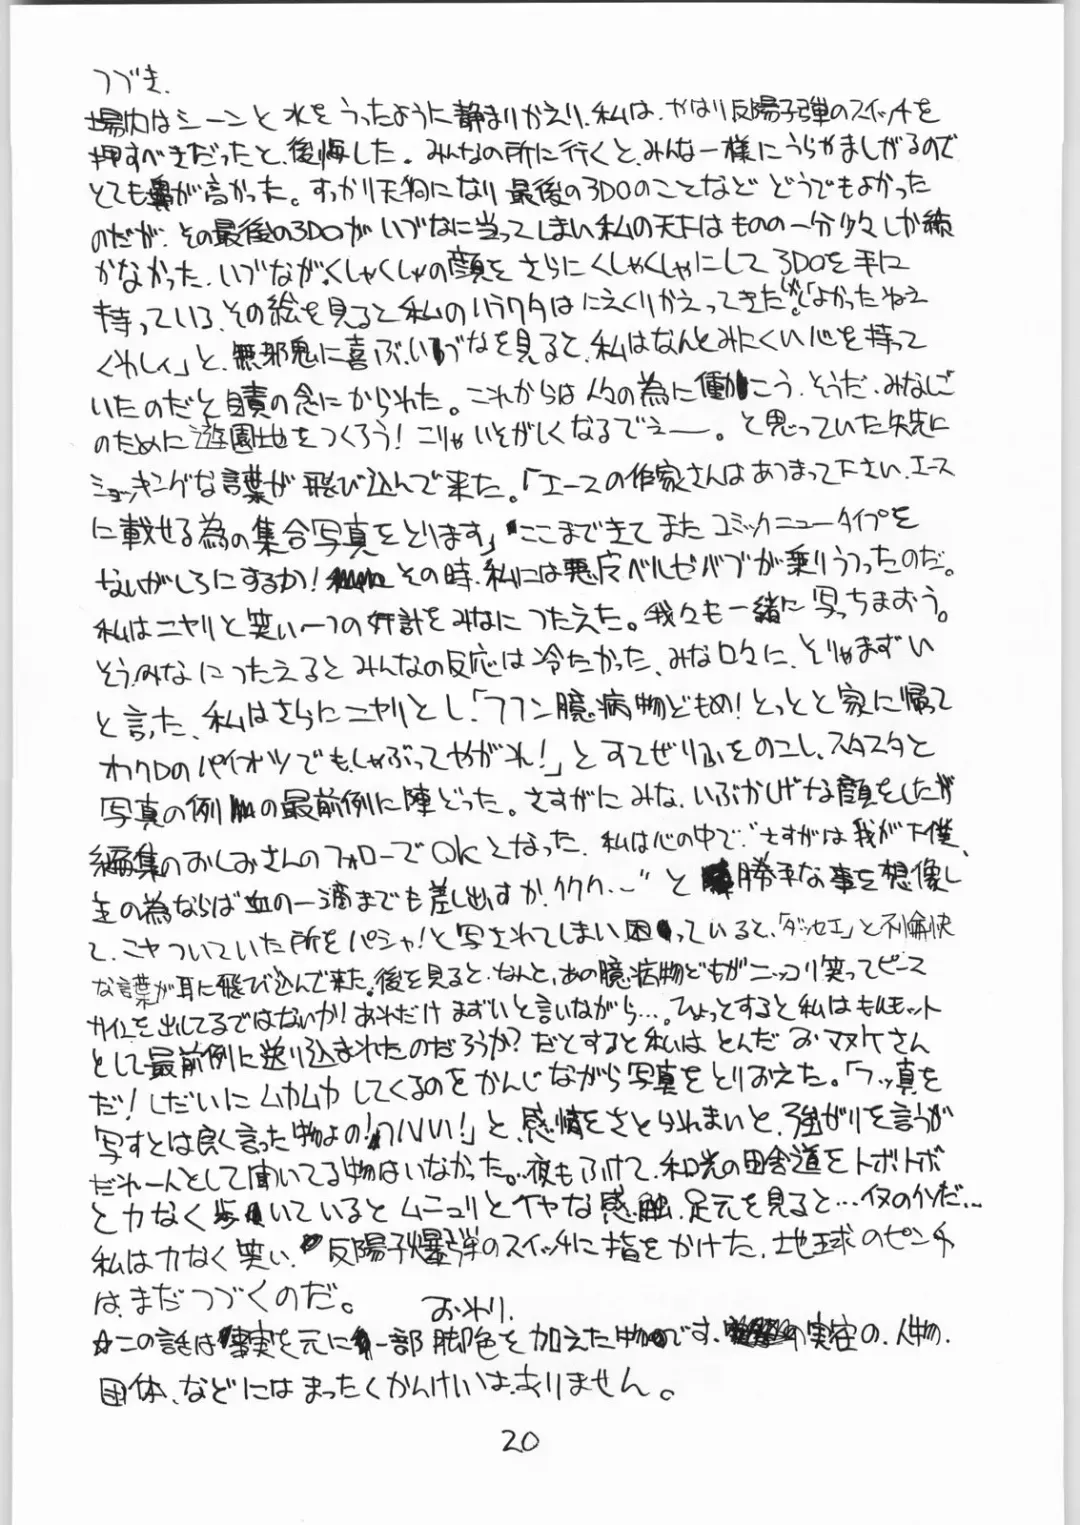 つづき.
場内はシーンと水をうったように静まりかえり、私は、やはり反陽子弾のスイッチを
押すべきだったと、後悔した。みんなの所に行くと、みんな一様にうらやましがるので
とても鼻が高かった。すっかり天狗になり最後の3DOのことなどどうでもよかった
のだが、その最後の3DOがいづなに当ってしまい私の天下はものの一分少々しか続
かなかった、いづながくしゃくしゃの顔をさらにくしゃくしゃにして3DOを手に
持っている、その絵を見ると私のハラワタはにえくりかえってきた「よかったねえ
くわしィ」と、無邪鬼に喜ぶ、いづなを見ると、私はなんとみにくい心を持って
いたのだと自責の念にかられた。これからは人々の為に働こう、そうだ、みなしご
のために遊園地をつくろう!こりゃいそがしくなるでぇー。と思っていた矢先に
ショッキングな言葉が飛び込んで来た。「エースの作家さんはあつまって下さい、エース
に載せる為の集合写真をとります」ここまできてまたコミックニュータイプを
ないがしろにするか! その時、私には悪魔ベルゼバブが乗りうつったのだ。
私はニヤリと笑い一つの奸計をみなにつたえた。我々も一緒に写っちまおう。
そうみなにつたえるとみんなの反応は冷たかった、みな口々に、そりゃまずい
と言った、私はさらにニヤリとし、「フフン臆病物どもめ!とっとと家に帰って
オフクロのパイオツでもしゃぶってやがれ!」とすてぜりふをのこし、スタスタと
写真の例の最前例に陣どった。さすがにみな、いぶかしげな顔をしたが
編集のおしおさんのフォローでOKとなった、私は心の中で"さすがは我が下僕、
主の為ならば血の一滴までも差し出すか、ククク…"と勝手な事を想像し
て、ニヤついていた所をパシャ!と写されてしまい困っていると、「ダッセエ」と不愉快
な言葉が耳に飛び込んで来た。後を見ると、なんと、あの臆病物どもがニッコリ笑ってピース
サインを出してるではないか!あれだけまずいと言いながら…。ひょっとすると私はもんモット
として最前例に送り込まれたのだろうか?だとすると私はとんだおマヌケさん
だ!しだいにムカムカしてくるのをかんじながら写真をとりおえた。「フッ真を
写すとは良く言った物よの!ワハハい!」と、感情をさとられまいと、強がりを言うが
だれ一人として聞いてる物はいなかった。夜もふけて、和光の田舎道をトボトボ
と力なく歩いているとムニュリとイヤな感触、足元を見ると…イヌのクソだ…
私は力なく笑い、反陽子爆弾のスイッチに指をかけた、地球のピンチ
は、まだつづくのだ。 おわり.
☆この話は事実を元に一部脚色を加えた物です、実在の、人物、
団体、などにはまったくかんけいは、ありません。
20